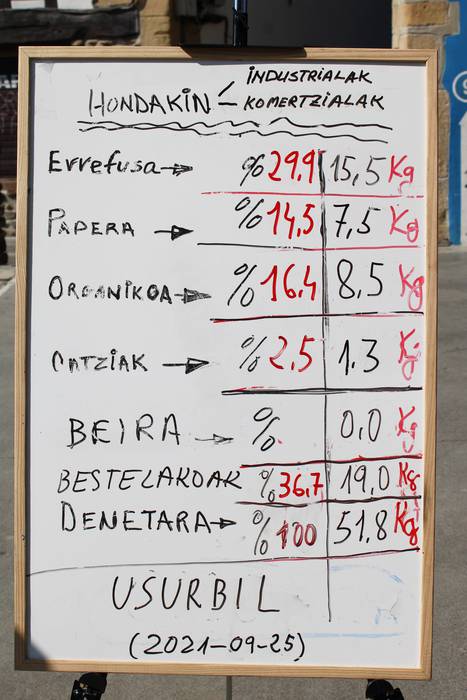 HONDAKIN
INDUSTRIALAK
KOMERTZIALAK
Errefusa → %29,9 15,5 Kg
PAPERA → %14,5 7,5 Kg
ORGANIKOA → %16,4 8,5 Kg
ONTZIAK → %2,5 1,3 Kg
BEIRA → % 0,0 Kg
BESTELAKOAK %36,7 19,0 Kg
DENETARA → %100 51,8 Kg
USURBIL
(2021-09-25)